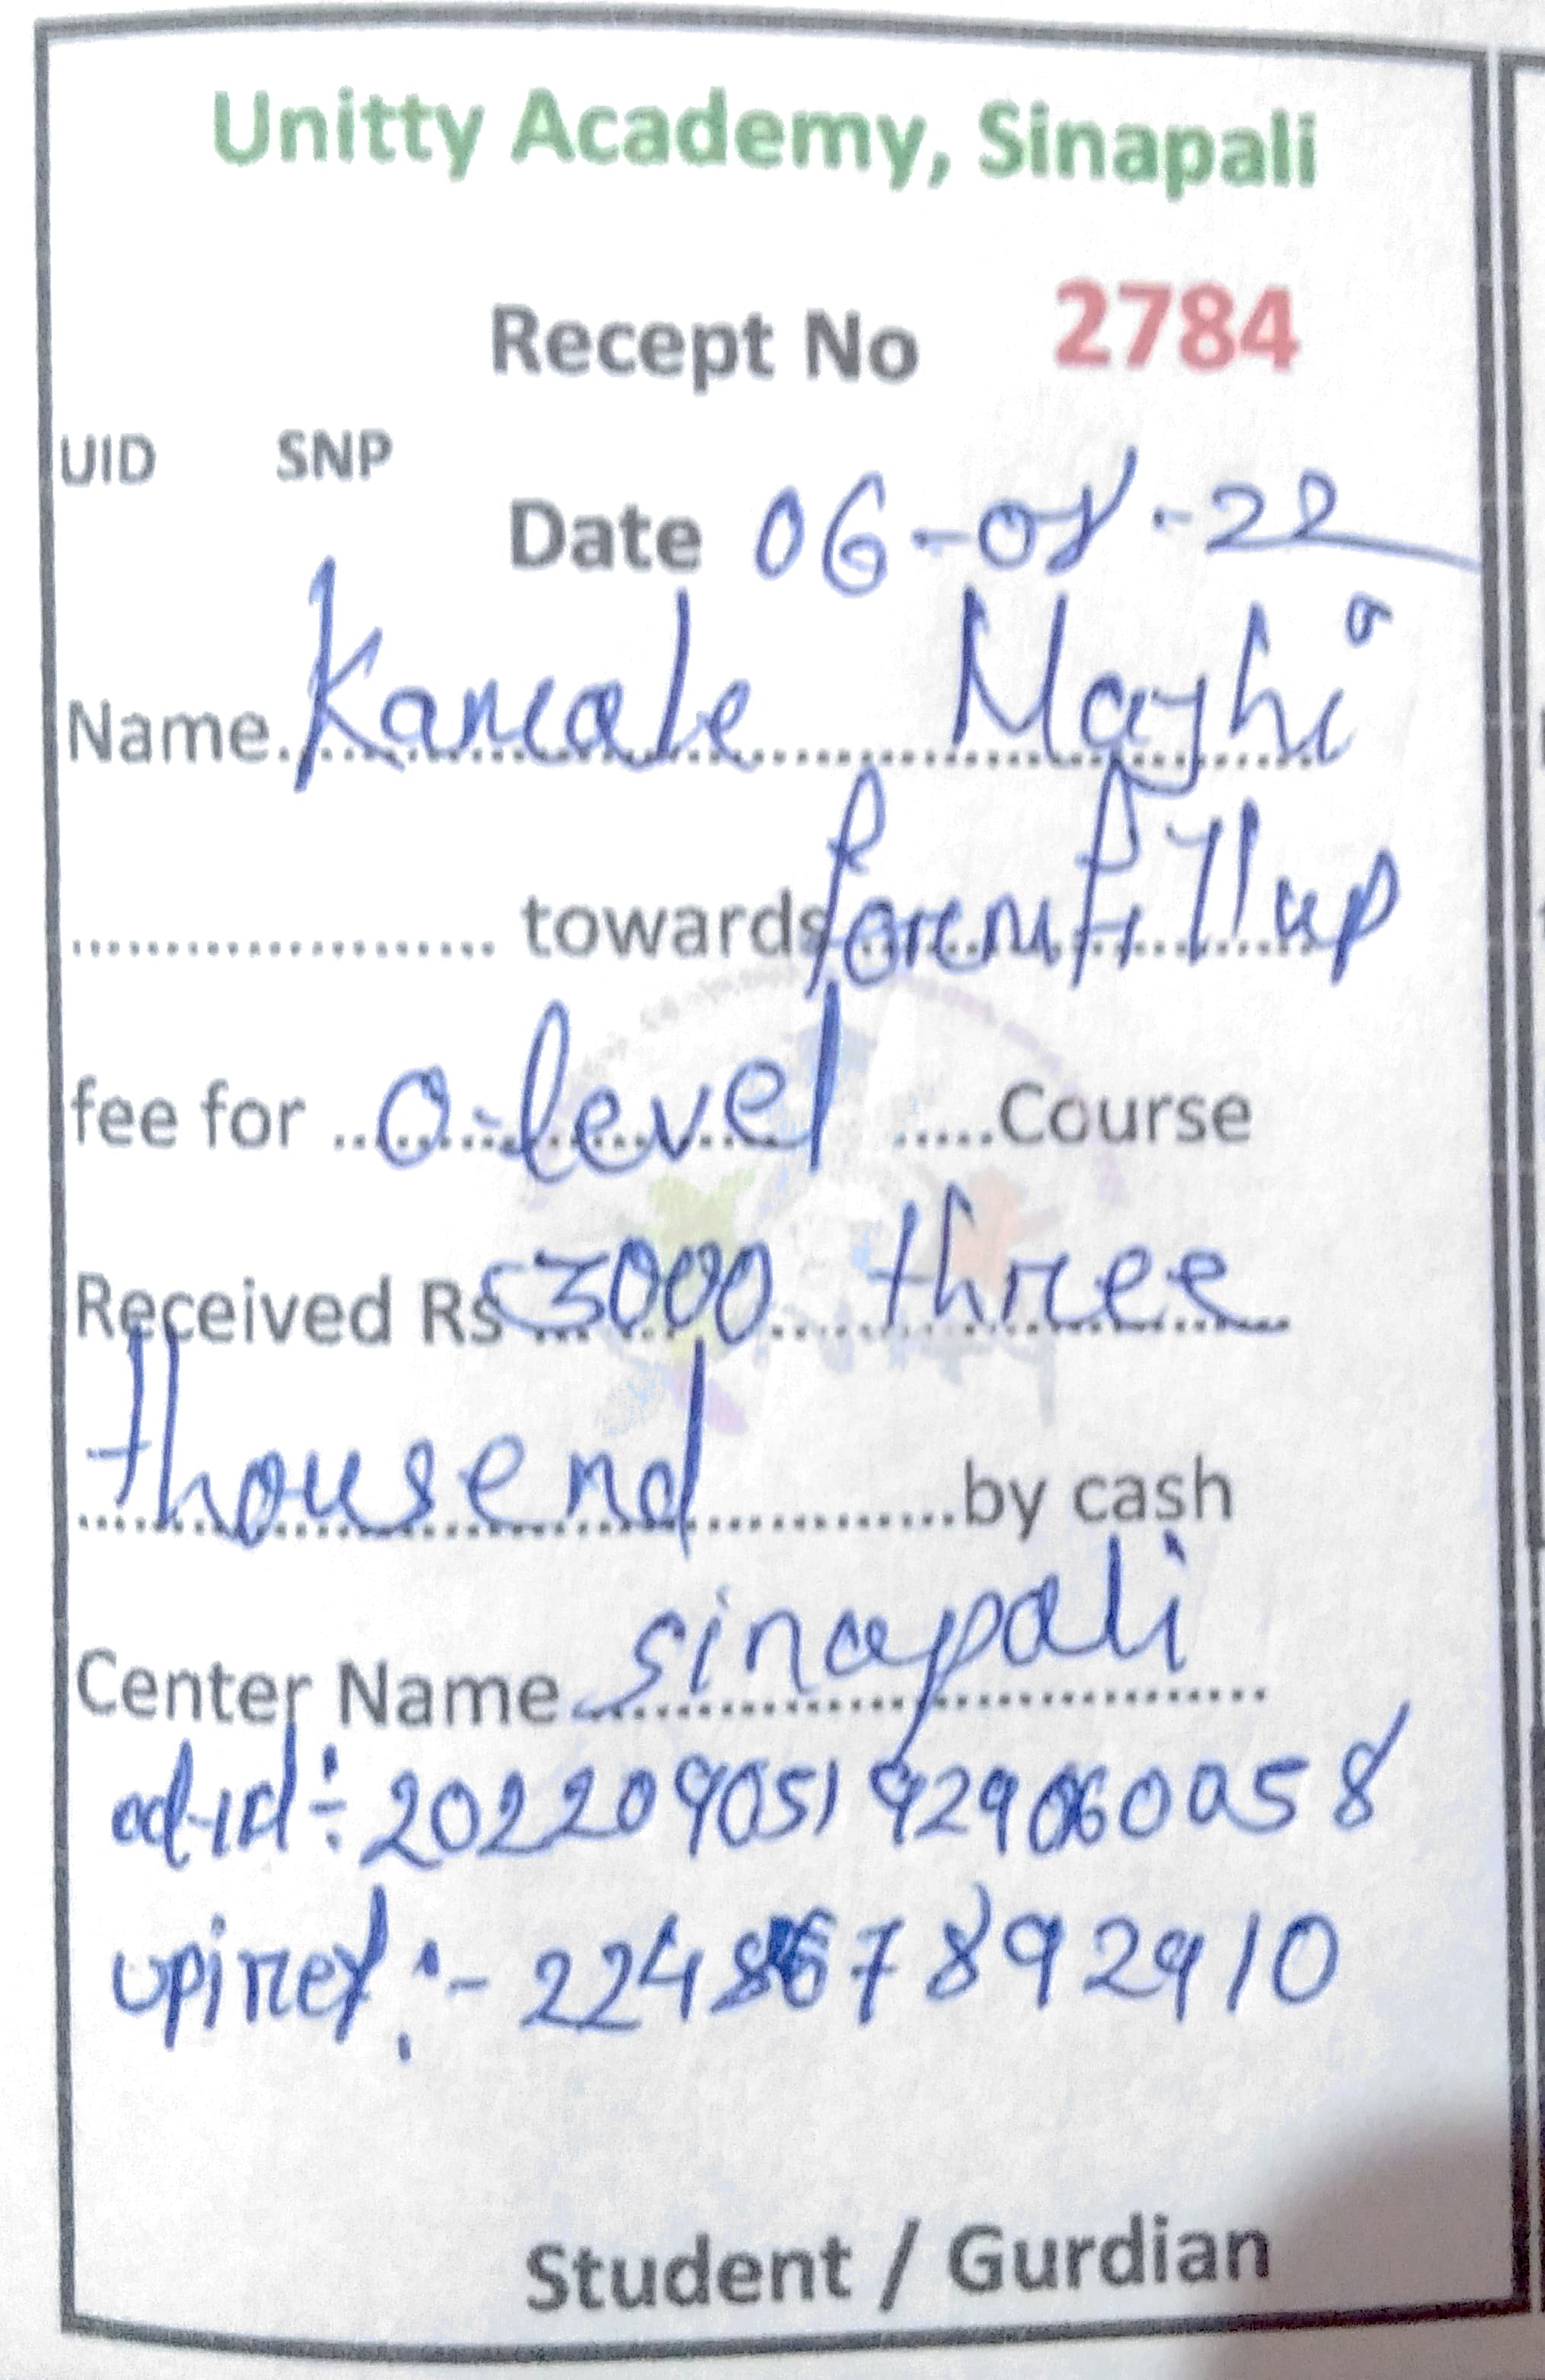 Unitty Academy, Sinapali
Recept No 2784
UID SNP
Date 06-08-22
Name Majhi
towards form fillup
fee for O-level Course
Received Rs 3000 three
thousend by cash
Center Name sinapali
upi ref :-
Student / Gurdian